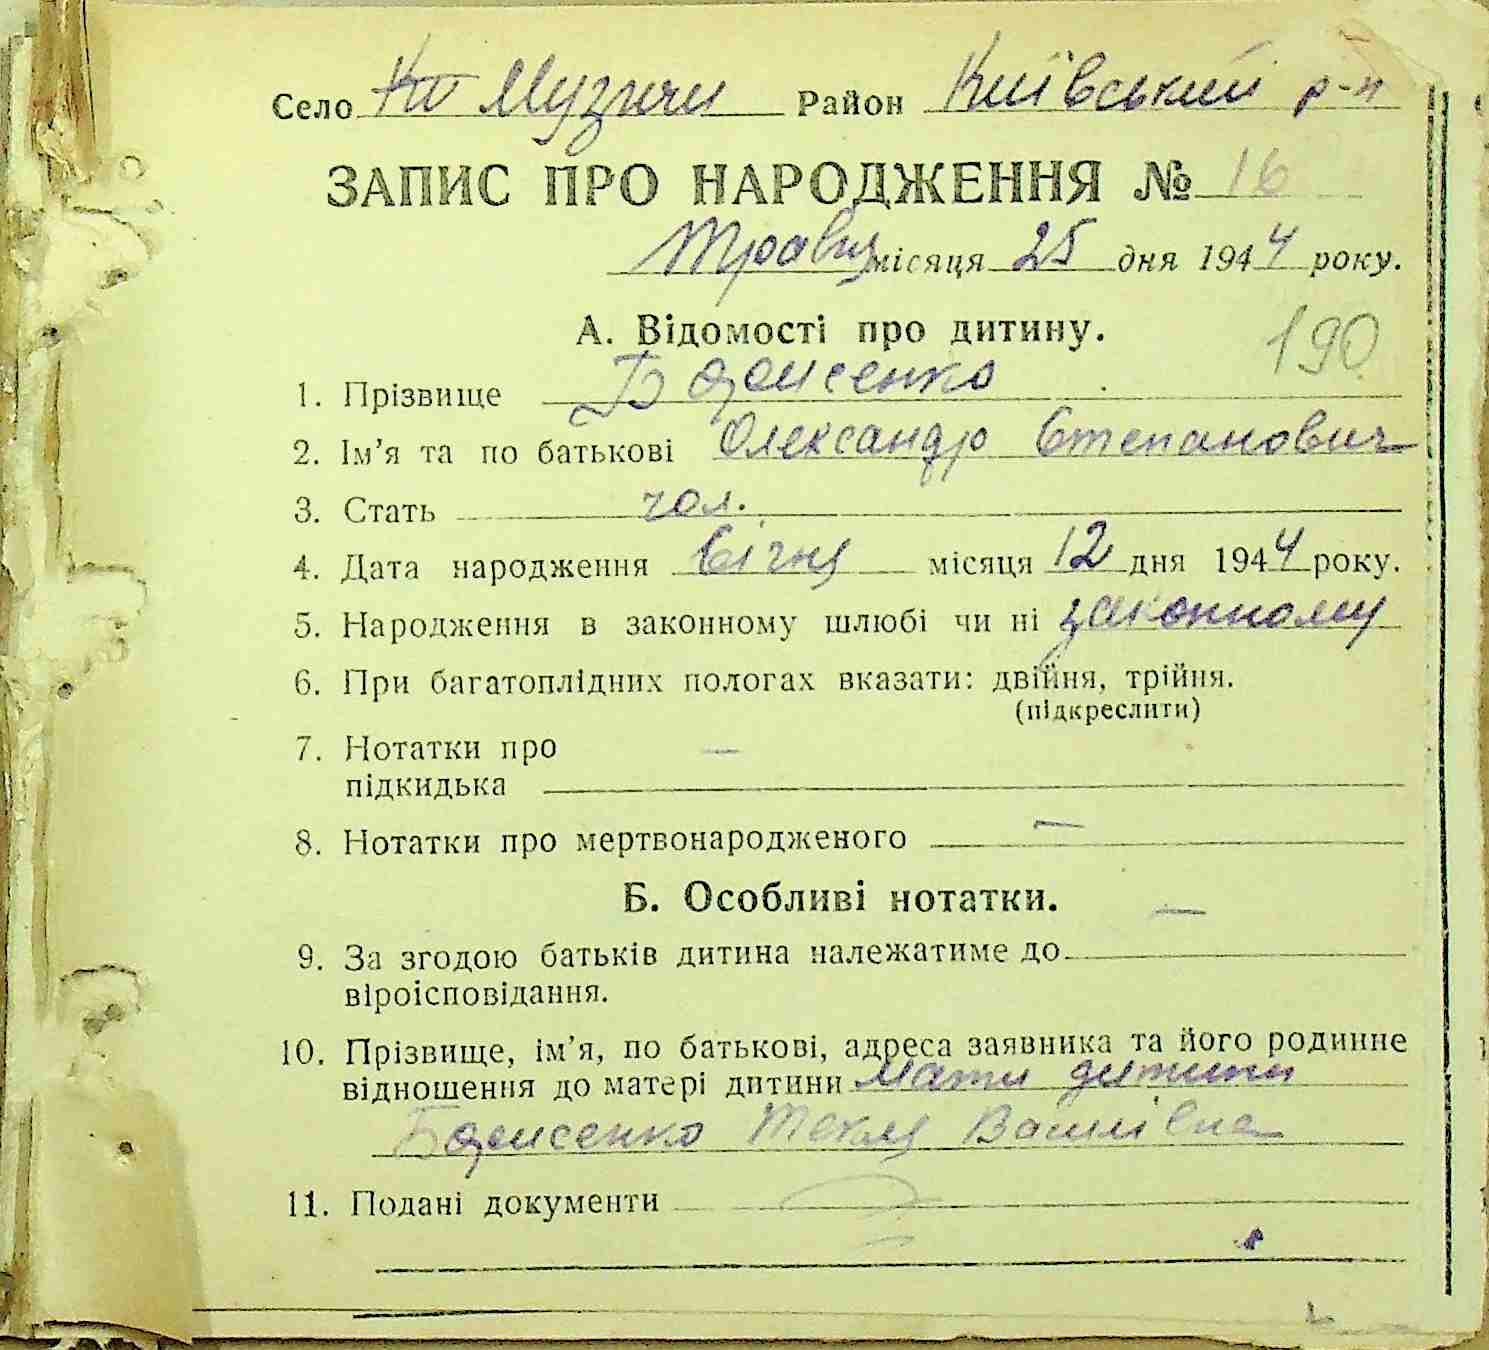 Село Музичи Район Київський р-н
ЗАПИС ПРО НАРОДЖЕННЯ № 16
Травня місяця 25 дня 1944 року.
А. Відомості про дитину.
190
1. Прізвище Борисенко
2. Ім'я та по батькові Олександр Степанович
3. Стать чол.
4. Дата народження Січня місяця 12 дня 1944 року.
5. Народження в законному шлюбі чи ні законному
6. При багатоплідних пологах вказати: двійня, трійня.
(підкреслити)
7. Нотатки про —
підкидька
8. Нотатки про мертвонародженого —
Б. Особливі нотатки.
9. За згодою батьків дитина належатиме до —
віроісповідання.
10. Прізвище, ім'я, по батькові, адреса заявника та його родинне
відношення до матері дитини Мати дитини
Борисенко Текля Василівна
11. Подані документи